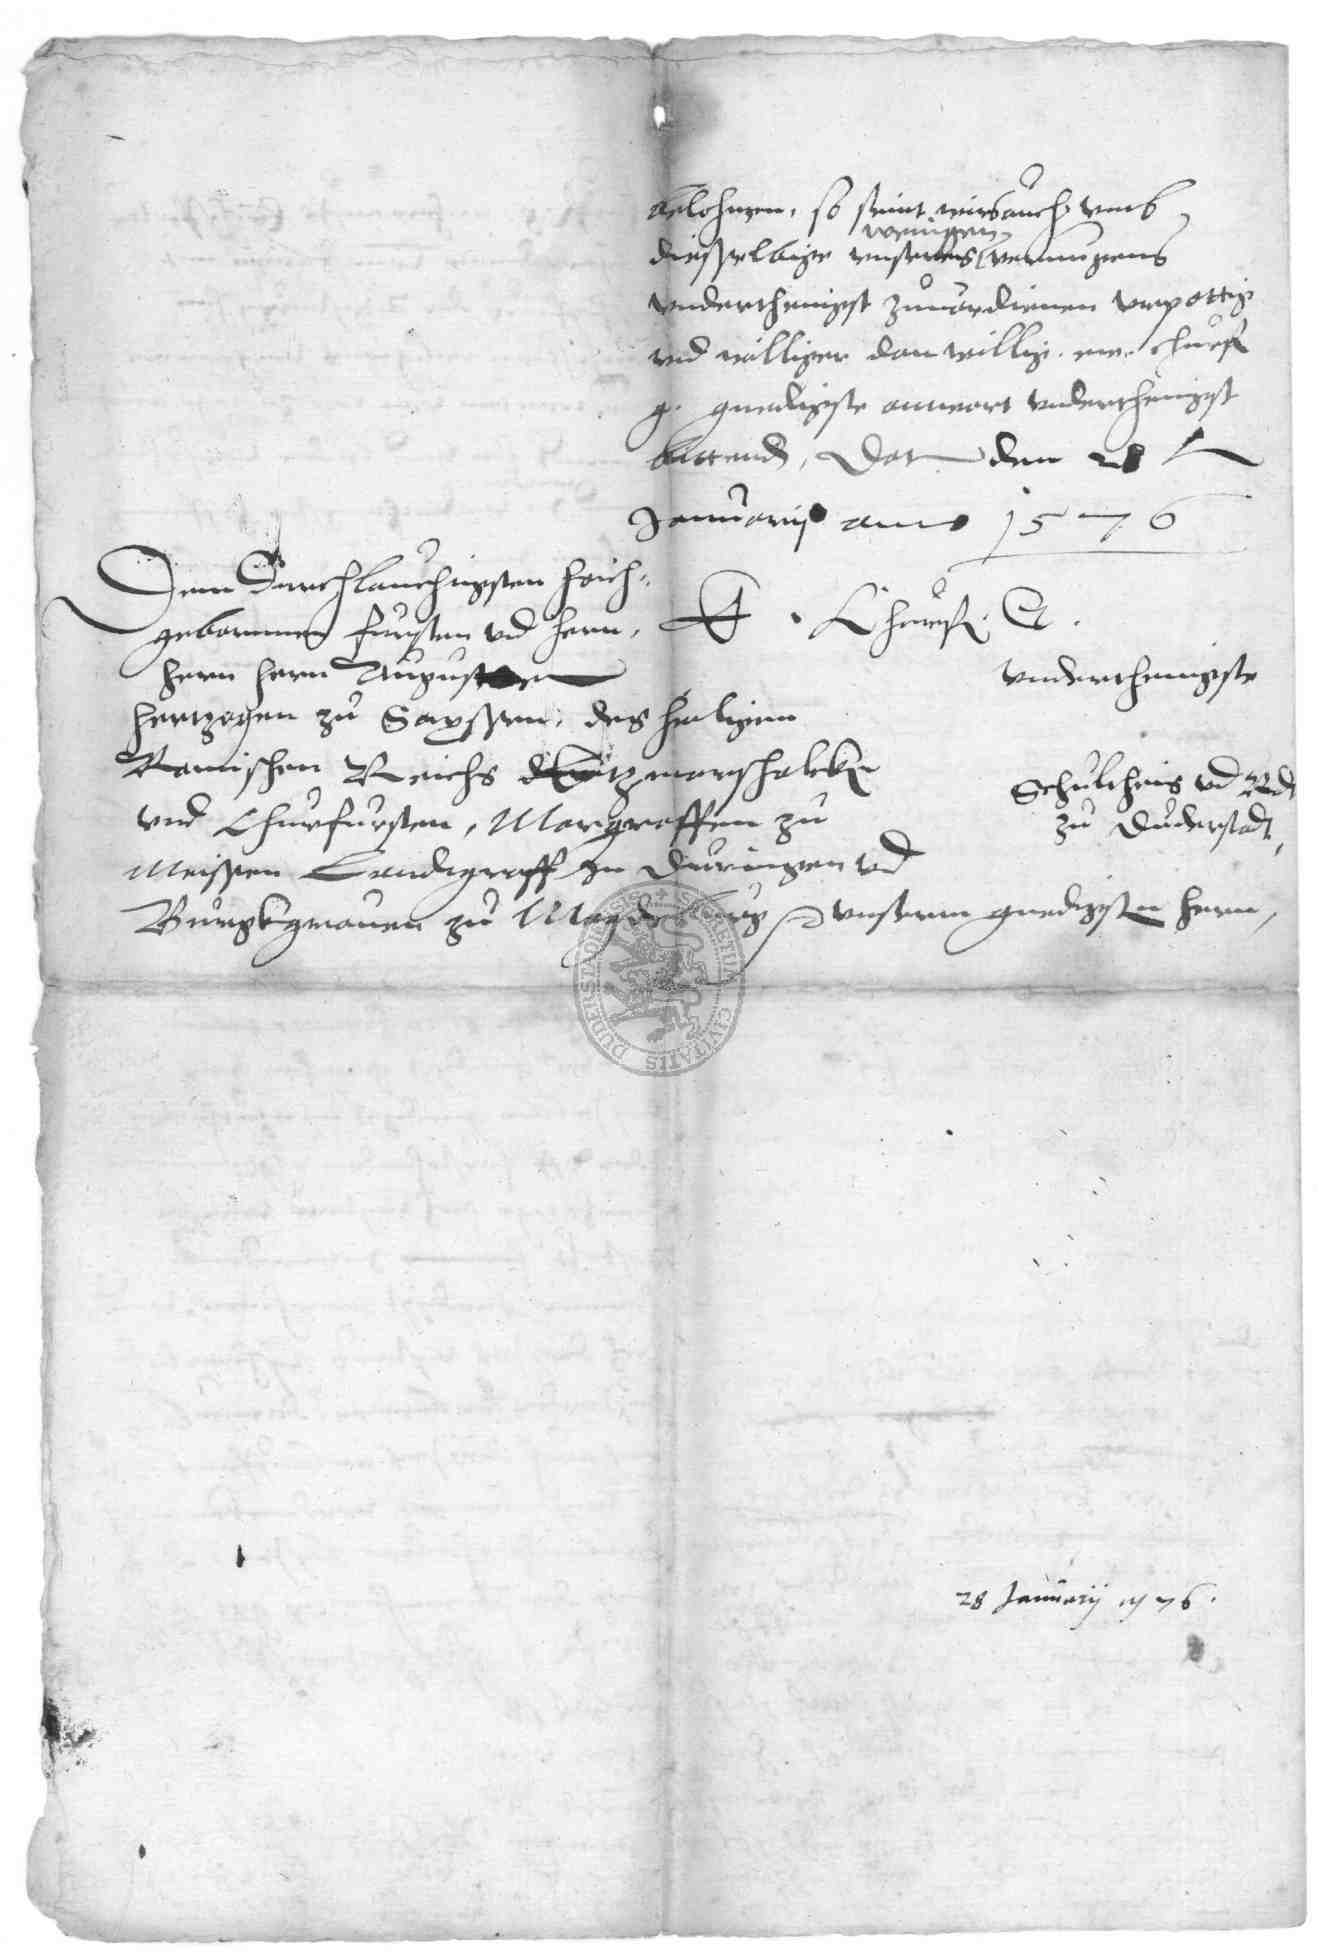 belohnen, so seint wirs auch umb
dieselbige unsers wenigen vermugens
underthenigst zuverdienen urpottig
und williger dan willig. ew. churf.
g. gnedigste antwort underthenigst
bittend, Dat den 28
Januarij anno 1576
E. Churf. G.
underthenigste
Schultheis und Radt
zu Duderstadt,
Dem Durchlauchtigsten hoich-
gebornnen fursten und hern,
hern hern Augusten
hertzogen zu Sayssen, des heiligen
Romischen Reichs Ertzmarschalck
und Churfursten, Marggraffen zu
Meissen Landtgraff in Duringen und
Burgkgraven zu Magdeburg unserm gnedigsten hern,
28 Januarij 1576.
DUDERSTADENSIS CIVITATIS